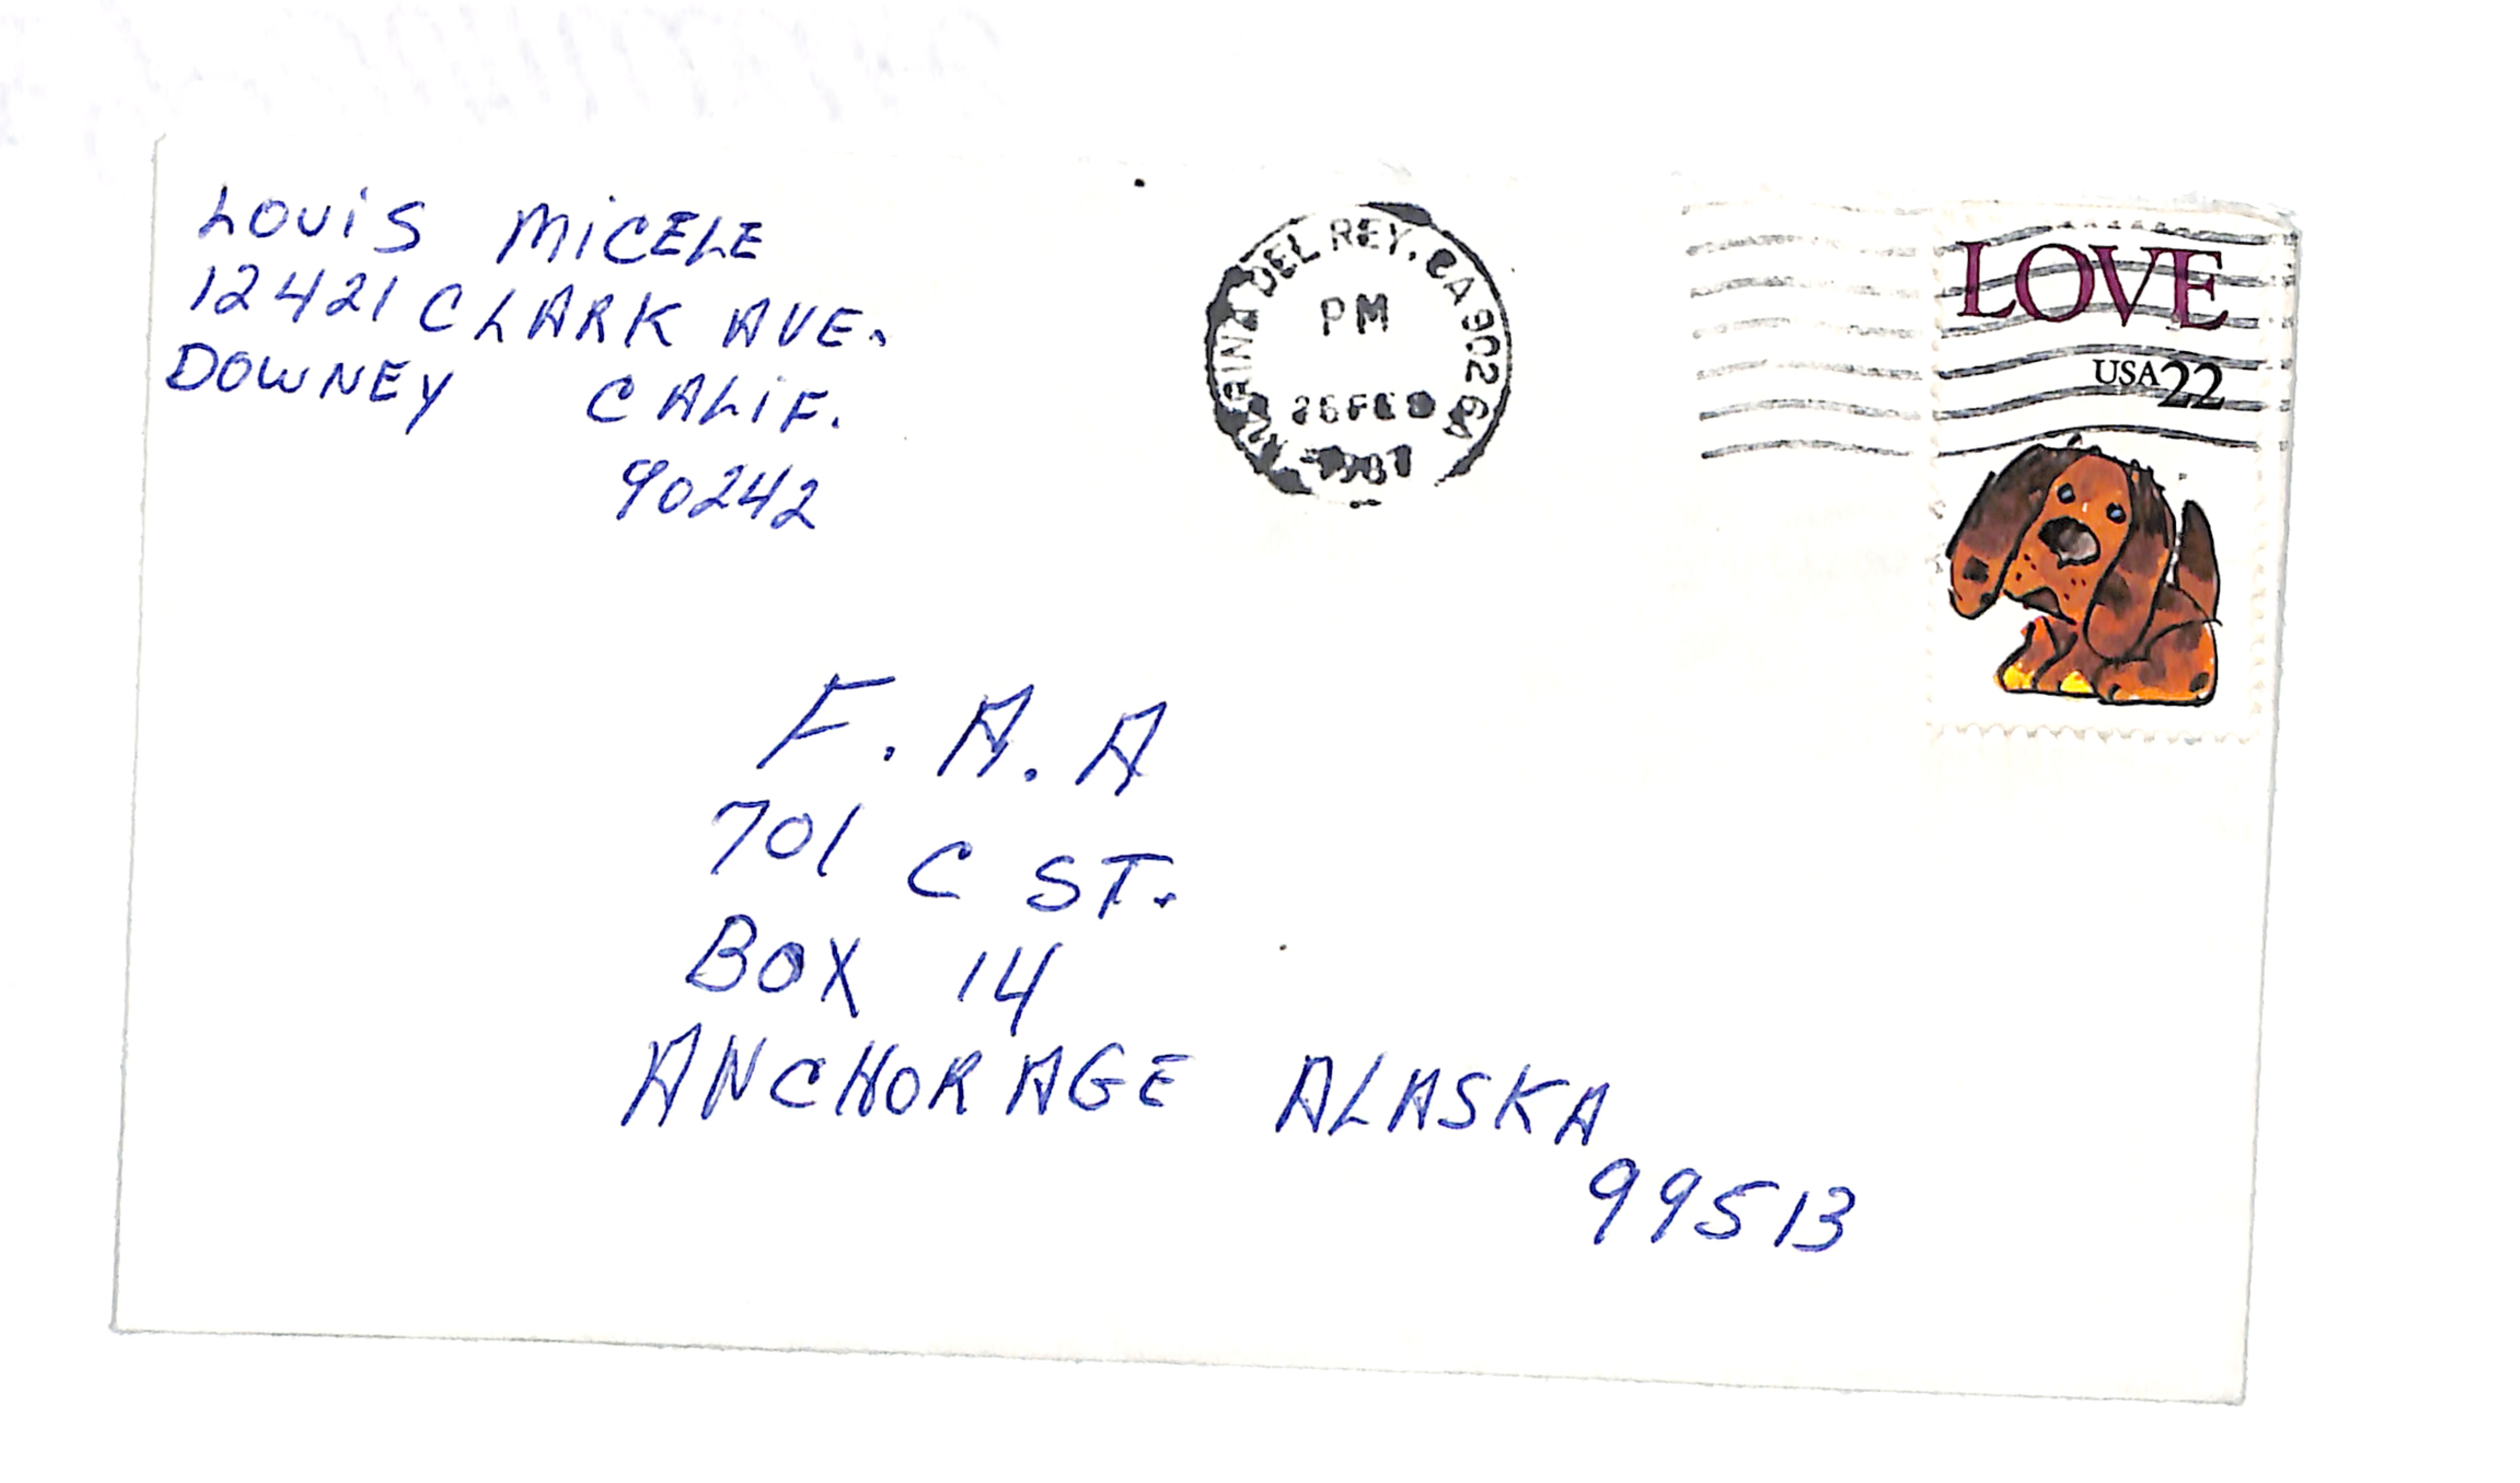 LOUIS MICELE
12421 CLARK AVE.
DOWNEY CALIF.
90242
MARINA DEL REY, CA 902
PM
26 FEB
1987
LOVE
USA 22
F. A. A
701 C ST.
BOX 14
ANCHORAGE ALASKA
99513